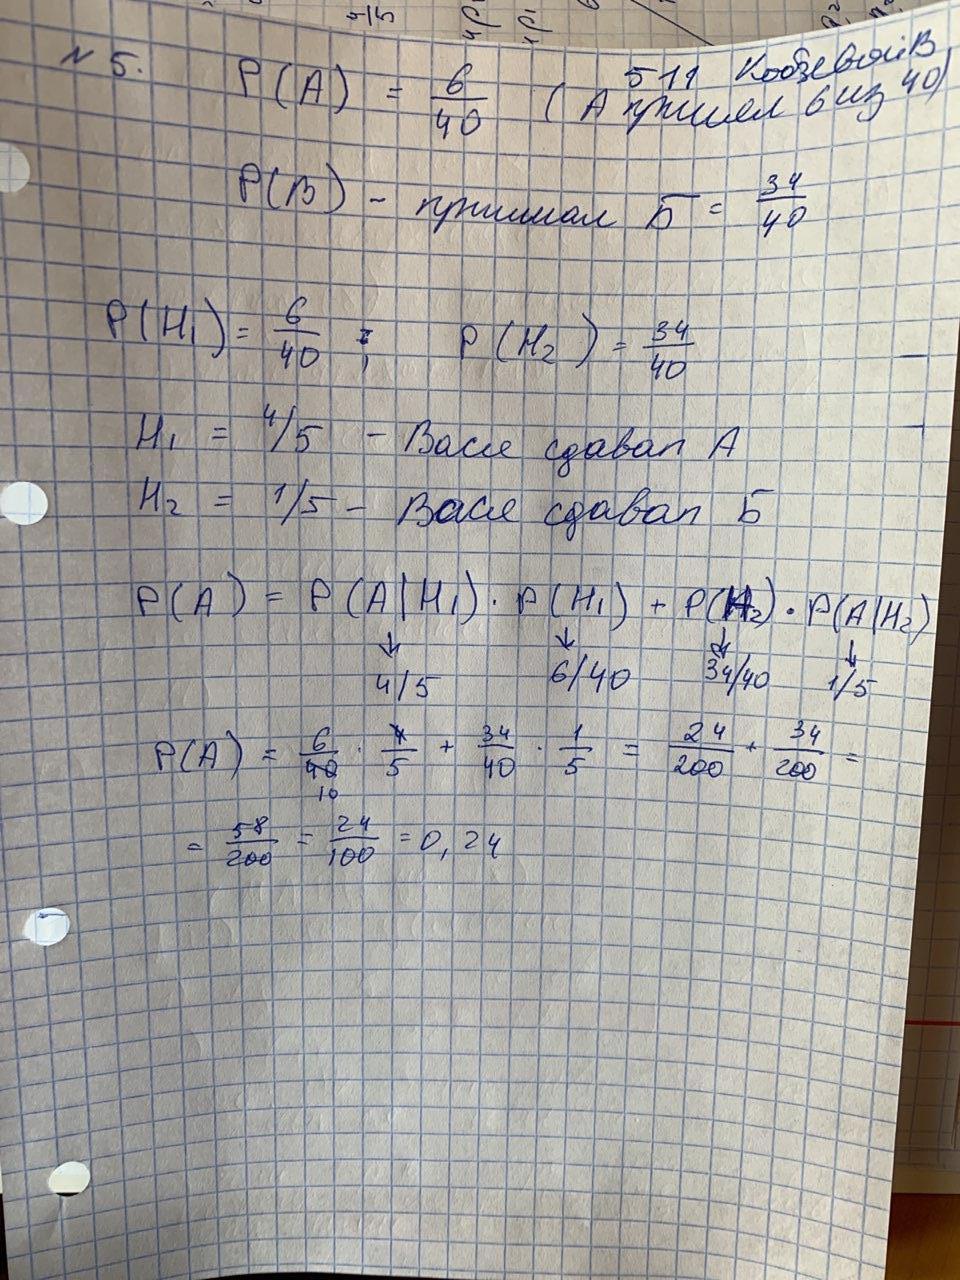 № 5. P(A) = 6/40 (А принял 6 из 40)
511 В
P(B) - принимал Б = 34/40
P(H₁) = 6/40 ; P(H₂) = 34/40
H₁ = 4/5 - Вася сдавал А
H₂ = 1/5 - Вася сдавал Б
P(A) = P(A|H₁) · P(H₁) + P(H₂) · P(A|H₂)
↓ ↓ ↓ ↓
4/5 6/40 34/40 1/5
P(A) = 6/40 · 4/5 + 34/40 · 1/5 = 24/200 + 34/200 =
10
= 58/200 = 24/100 = 0,24